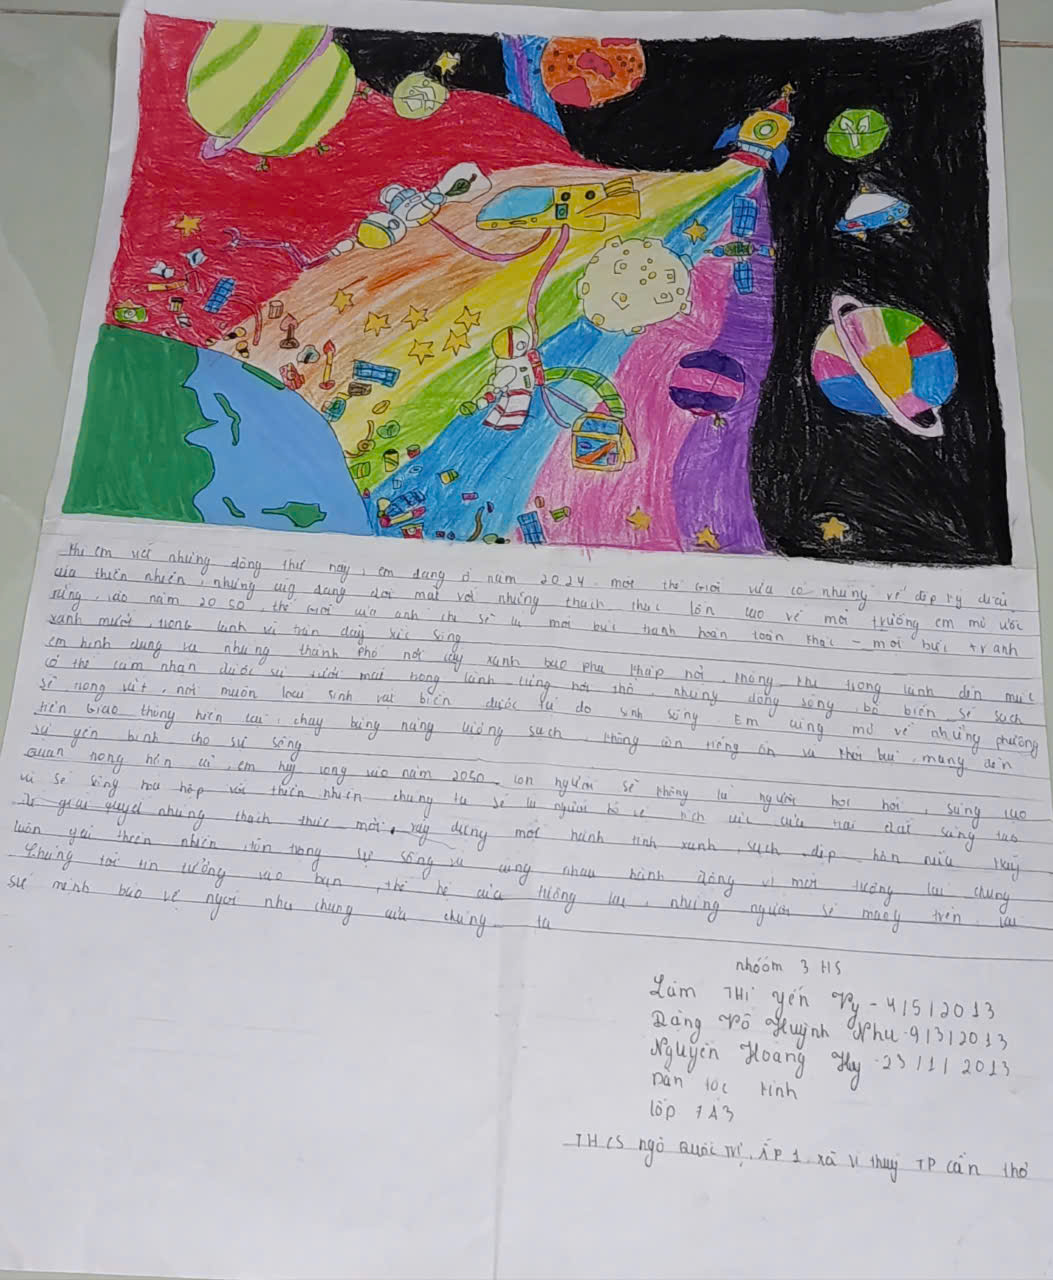 Khi em viết những dòng thư này, em đang ở năm 2024. một thế giới vừa có những vẻ đẹp kỳ diệu
của thiên nhiên, nhưng cũng đang đối mặt với những thách thức lớn lao về môi trường em mơ ước
rằng, vào năm 2050, thế giới của anh chị sẽ là một bức tranh hoàn toàn khác - một bức tranh
xanh mướt, trong lành và tràn đầy sức sống
em hình dung ra những thành phố nơi cây xanh bao phủ khắp nơi, không khí trong lành đến mức
có thể cảm nhận được sự tươi mát trong từng hơi thở, những dòng sông, bờ biển sẽ sạch
sẽ trong vắt, nơi muôn loài sinh vật biển được tự do sinh sống. Em cũng mơ về những phương
tiện giao thông hiện đại, chạy bằng năng lượng sạch, không còn tiếng ồn và khói bụi, mang đến
sự yên bình cho sự sống
Quan trọng hơn cả, em hy vọng vào năm 2050 con người sẽ không là người hơi hơi, sáng tạo
và sẽ sống hòa hợp với thiên nhiên chúng ta sẽ là người bảo vệ tích cực của trái đất sáng tạo
để giải quyết những thách thức mới, xây dựng một hành tinh xanh, sạch đẹp hơn nữa Hãy
luôn yêu thiên nhiên, tôn trọng sự sống và cùng nhau hành động vì một tương lai chung
Chúng tôi tin tưởng vào bạn, thế hệ của tương lai, những người sẽ mang trên vai
sứ mệnh bảo vệ ngôi nhà chung của chúng ta
nhóơm 3 HS
Lâm THị yến Vy - 4/5/2013
Đặng Võ Huỳnh Như - 9/3/2013
Nguyễn Hoàng Hy - 23/1/2013
Dân tộc kinh
lớp 7A3
THCS ngô Quốc trị, ấp 1 xã vị thuỷ TP cần thơ